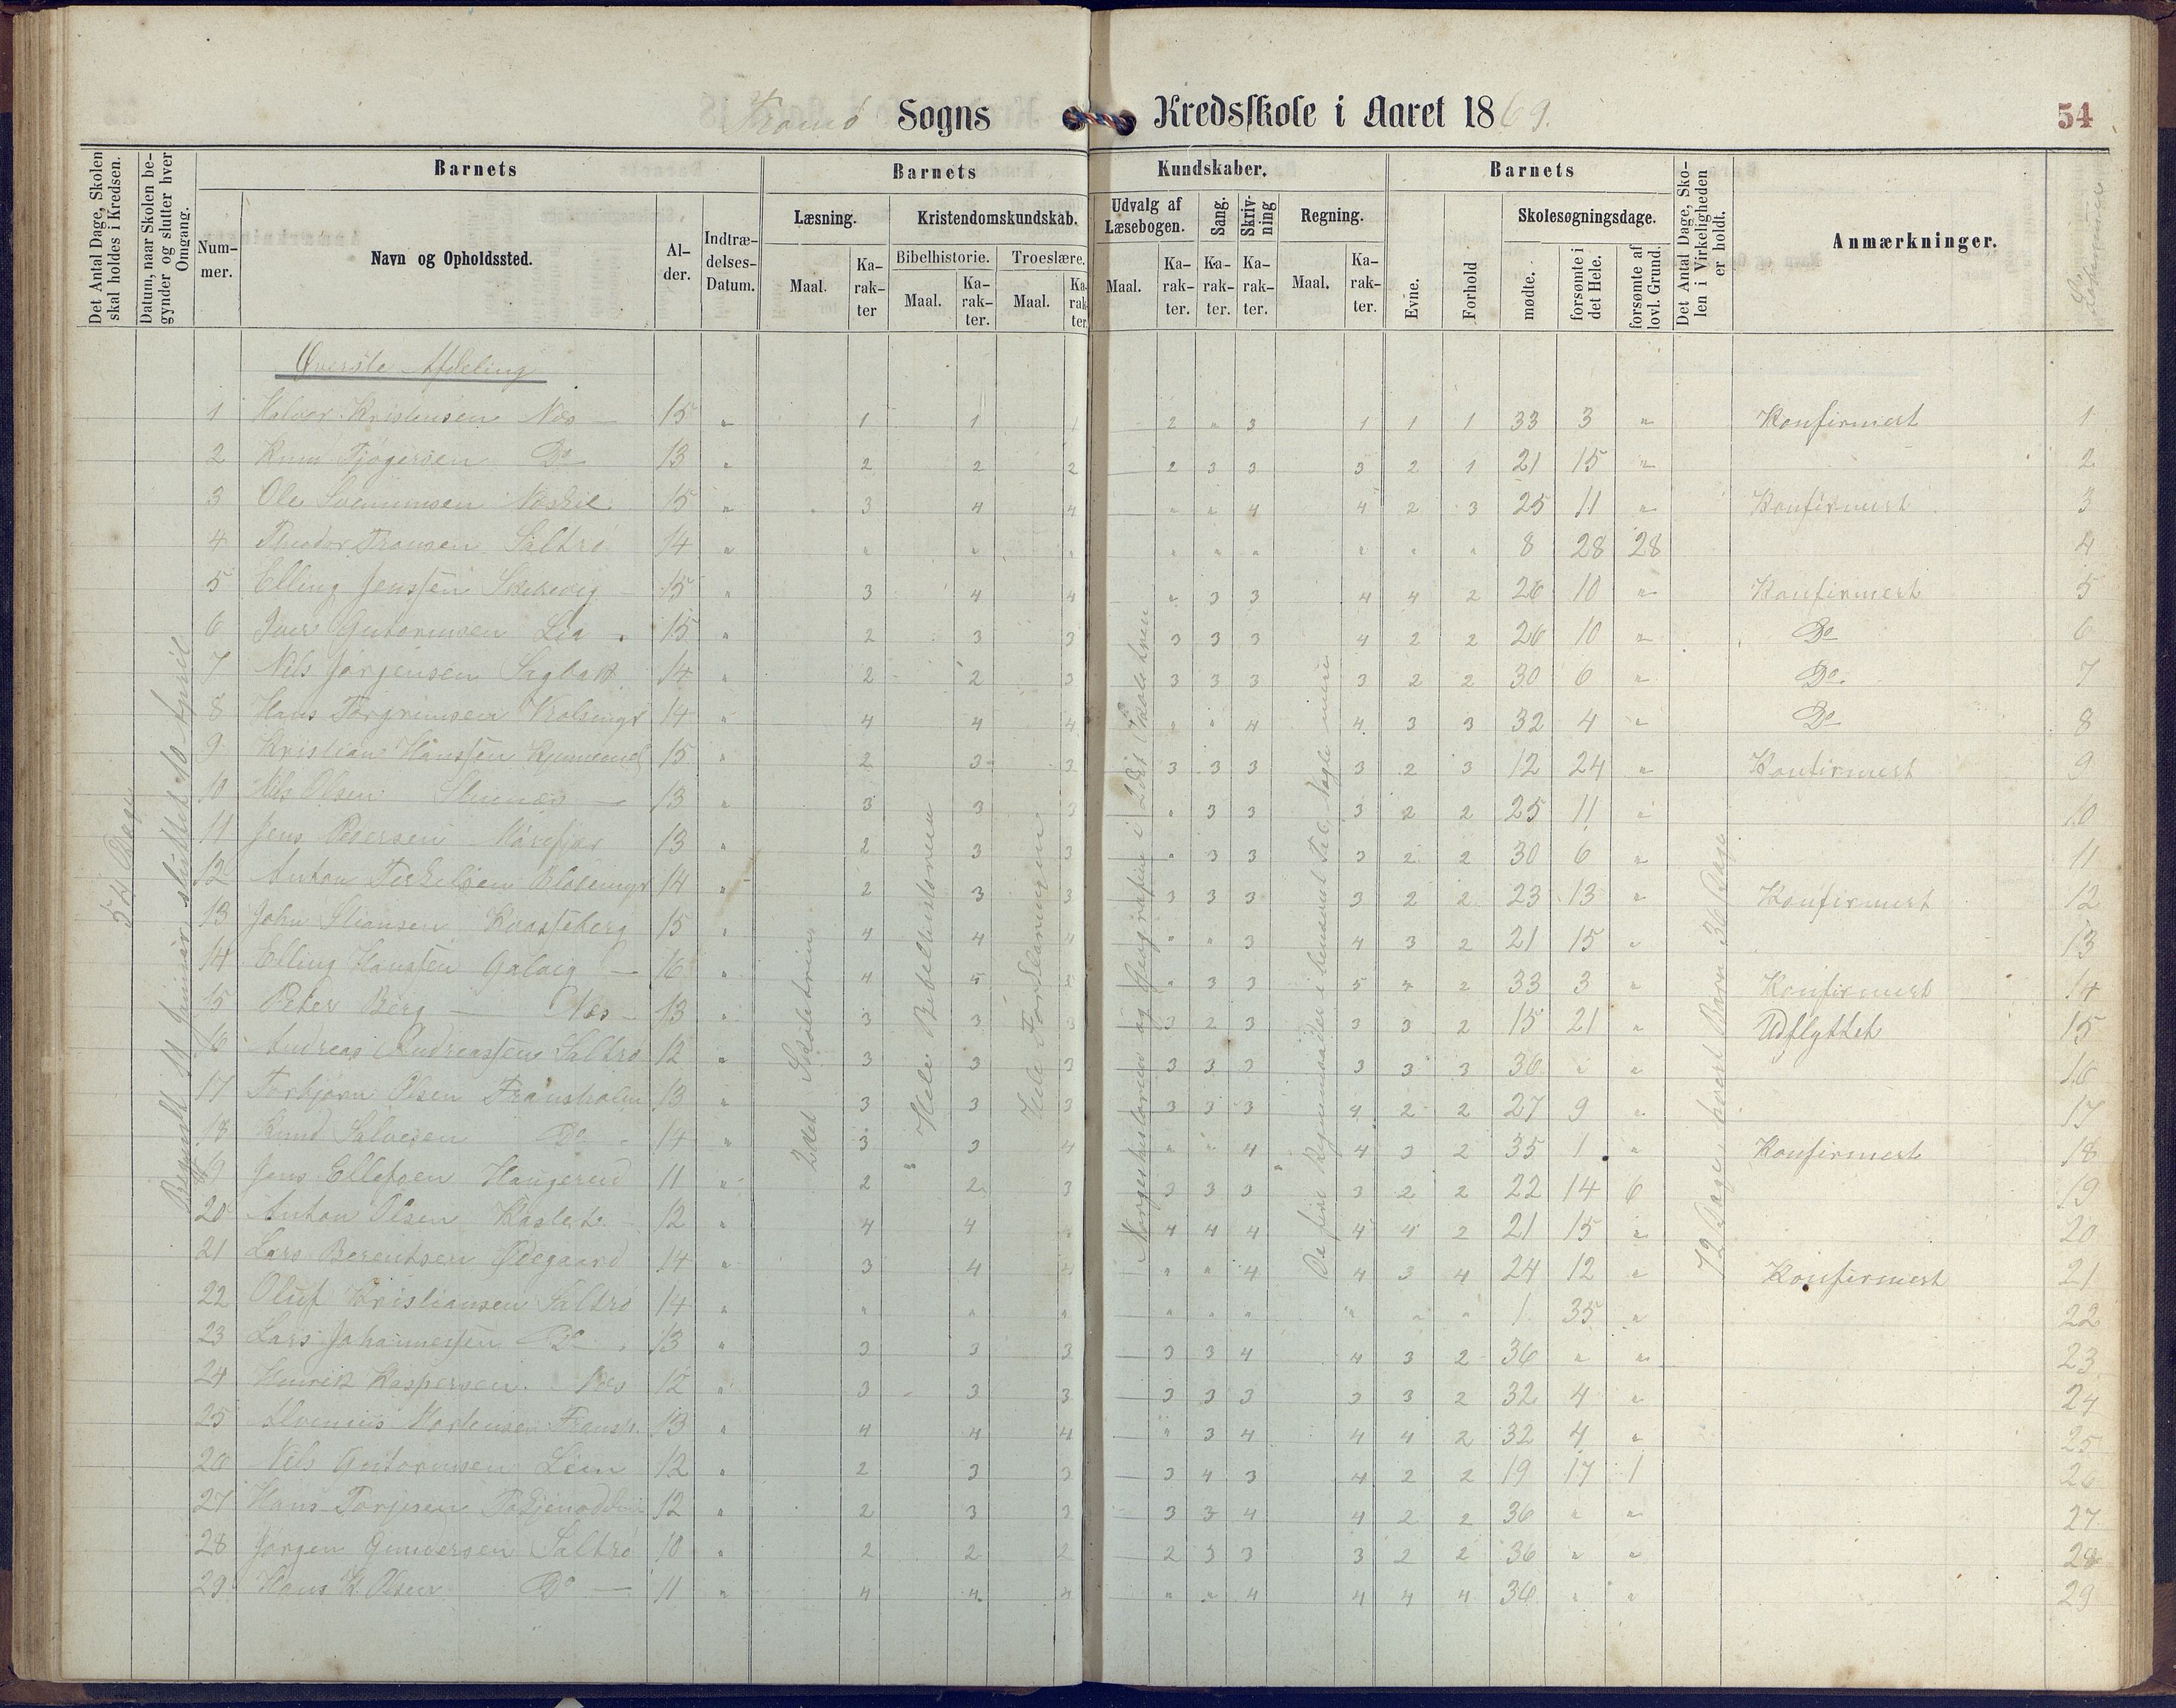 Tromø Sogns Kredsskole i Aaret 1869. 54
Det Antal Dage, Skolen skal holdes i Kredsen.
Datum, naar Skolen begynder og slutter hver Omgang.
Barnets
Nummer.
Navn og Opholdssted.
Alder.
Indtrædelses-Datum.
Barnets Kundskaber.
Læsning.
Maal.
Karakter
Kristendomskundskab.
Bibelhistorie.
Maal.
Karakter.
Troeslære.
Maal.
Karakter.
Udvalg af Læsebogen.
Maal.
Karakter.
Sang.
Karakter.
Skrivning
Karakter.
Regning.
Maal.
Karakter.
Barnets
Evne.
Forhold
Skolesøgningsdage.
mødte.
forsømte i det Hele.
forsømte af lovl. Grund.
Det Antal Dage, Skolen i Virkeligheden er holdt.
Anmærkninger.
Øverste Afdeling
54 Dage
Begyndt 11 Januar sluttet 10 April
2det Skoletrin
Hele Bibelhistorien
Hele Forklaringen
Norgeshistorien og Geografien i 2det Skoletrin
De fire Regningsarter i benævnt Tal Nogle mere
72 Dage hvert Barn 36 Dage
1 Halvor Kristensen Næs 15 " 1 1 1 2 " 3 1 1 1 33 3 " Konfirmert 1
2 Knud Tjøgersen Do 13 " 2 2 2 2 3 3 3 2 1 21 15 " 2
3 Ole Svenumsen Næskil 15 " 3 4 4 " " 4 4 2 3 25 11 " Konfirmert 3
4 Theodor Thomsen Saltrø 14 " " " " " " " " " " 8 28 28 4
5 Elling Jenssen 15 " 3 4 4 " 3 3 4 4 2 26 10 " Konfirmert 5
6 Iver Gutormsen Lia 15 " 2 3 3 3 3 3 4 2 2 26 10 " Do 6
7 Nils Jørgensen 14 " 2 2 3 3 3 3 3 2 2 30 6 " Do 7
8 Hans 14 " 4 4 4 " " 4 4 3 3 32 4 " Do 8
9 Kristian Hanssen 15 " 2 3 3 3 3 3 3 2 3 12 24 " Konfirmert 9
10 Nils Olsen 13 " 3 3 3 " 3 3 3 2 2 25 11 " 10
11 Jens Pedersen 13 " 2 3 3 " 3 3 3 2 2 30 6 " 11
12 Anton Terkelsen 14 " 2 3 3 3 3 3 3 2 2 23 13 " Konfirmert 12
13 John Stiansen 15 " 4 4 4 " " 3 4 3 2 21 15 " 13
14 Elling Hanssen Galvig 16 " 4 5 5 " 3 3 5 2 33 3 " Konfirmert 14
15 Peter Berg Næs 13 " 3 3 3 3 2 3 3 3 2 15 21 " Udflyttet 15
16 Andreas Andreassen Saltrø 12 " 3 3 3 3 3 3 3 3 3 36 " " 16
17 Torbjørn Olsen Fransholm 13 " 3 3 3 3 3 3 4 2 2 27 9 " 17
18 Knud Salvesen Do 14 " 3 3 4 " " 4 4 3 2 35 1 " Konfirmert 18
19 Jens Ellefsen Haugerud 11 " 2 2 3 3 3 3 3 2 2 22 14 6 19
20 Anton Olsen 12 " 4 4 4 4 4 4 4 2 21 15 " 20
21 Lars Berentsen Ødegaard 14 " 3 4 4 " " 4 4 3 4 24 12 " Konfirmert 21
22 Oluf Kristiansen Saltrø 14 " " " " " " " " " " 1 35 " 22
23 Lars Johannessen Do 13 " 3 3 3 3 3 4 4 3 2 36 " " 23
24 Henrik Kaspersen Næs 12 " 3 3 3 3 3 3 3 3 2 32 4 " 24
25 Mortensen Fransh. 13 " 4 4 4 " 3 4 4 4 2 32 4 " 25
26 Nils Gutormsen Lien 12 " 2 3 3 3 4 3 4 2 2 19 17 1 26
27 Hans Torjesen 12 " 2 3 3 3 3 4 4 2 2 36 " " 27
28 Jørgen Gundersen Saltrø 10 " 2 2 2 2 3 3 3 2 2 36 " " 28
29 Hans K Olsen Do 11 " 4 4 4 " " 4 4 4 4 36 " " 29